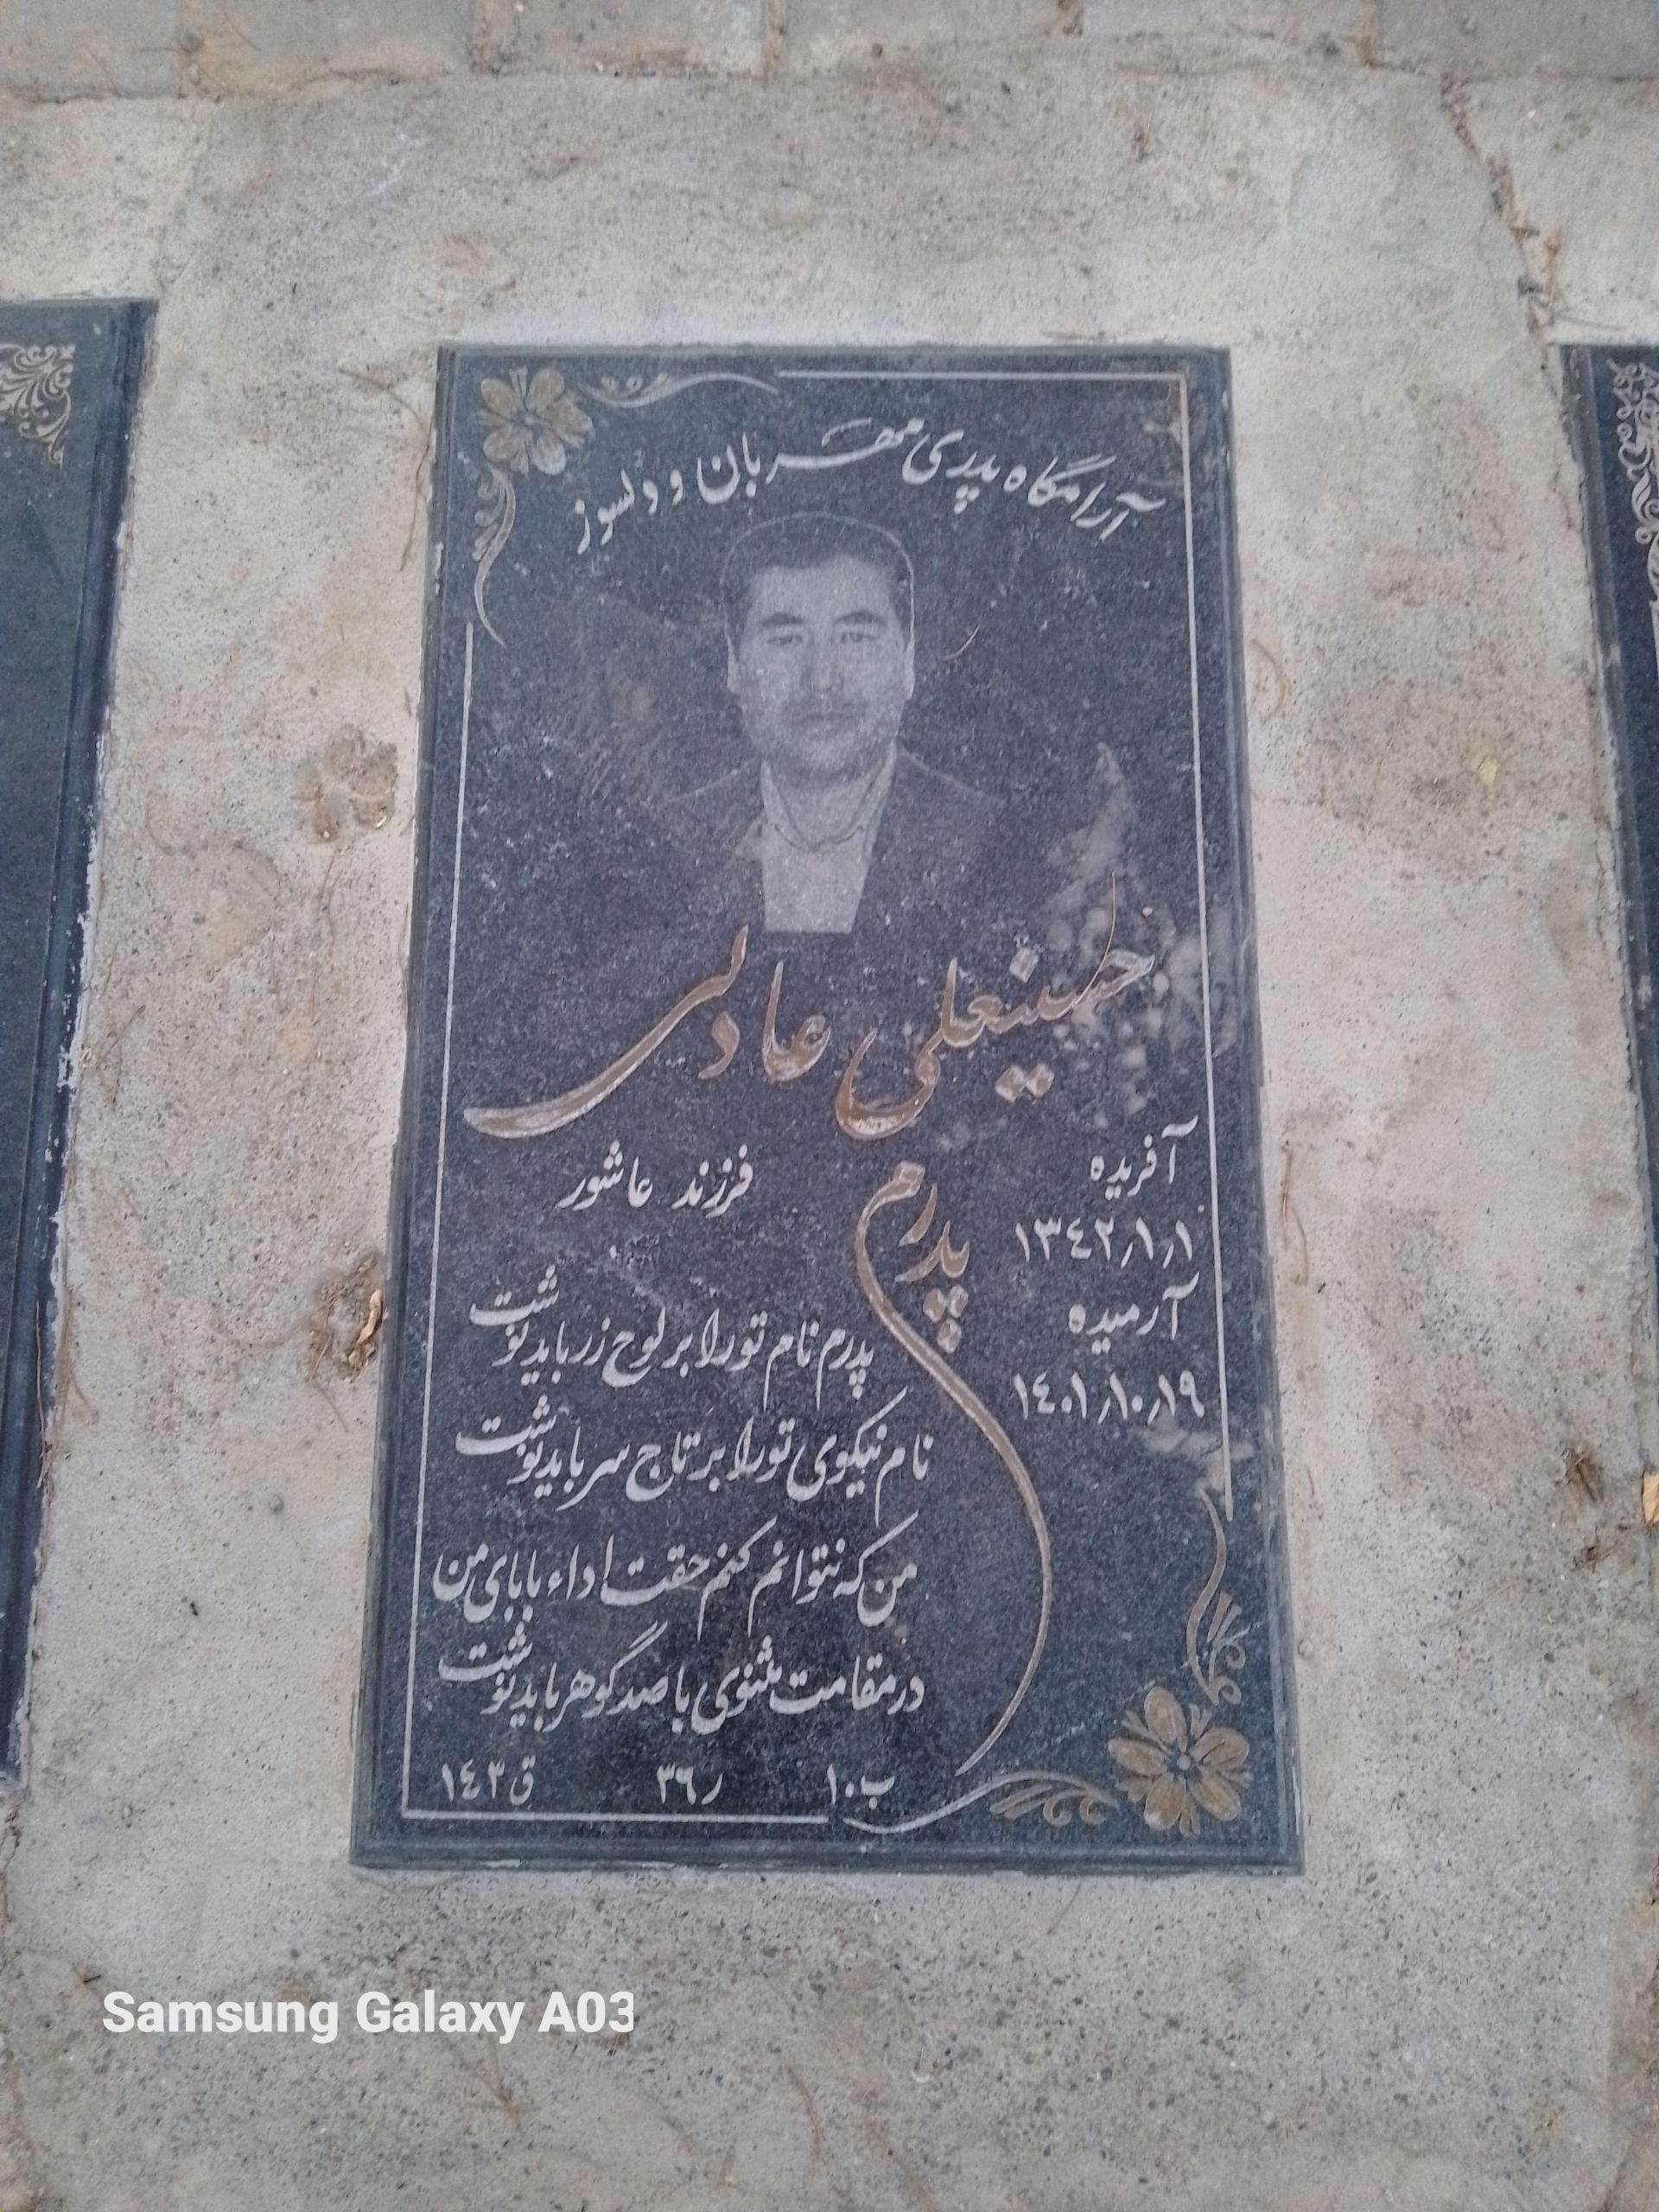 آرامگاه پدری مهربان و دلسوز
حسینعلی عادلی
فرزند عاشور
پدرم
آفریده
١٣٤٢/١/١
آرمیده
١٤٠١/١٠/١٩
پدرم نام تو را بر لوح زر باید نوشت
نام نیکوی تو را بر تاج سر باید نوشت
من که نتوانم کنم حقت اداء بابای من
در مقامت مثنوی با صد گوهر باید نوشت
ب ١٠ ر ٣٦ ق ١٤٣
Samsung Galaxy A03